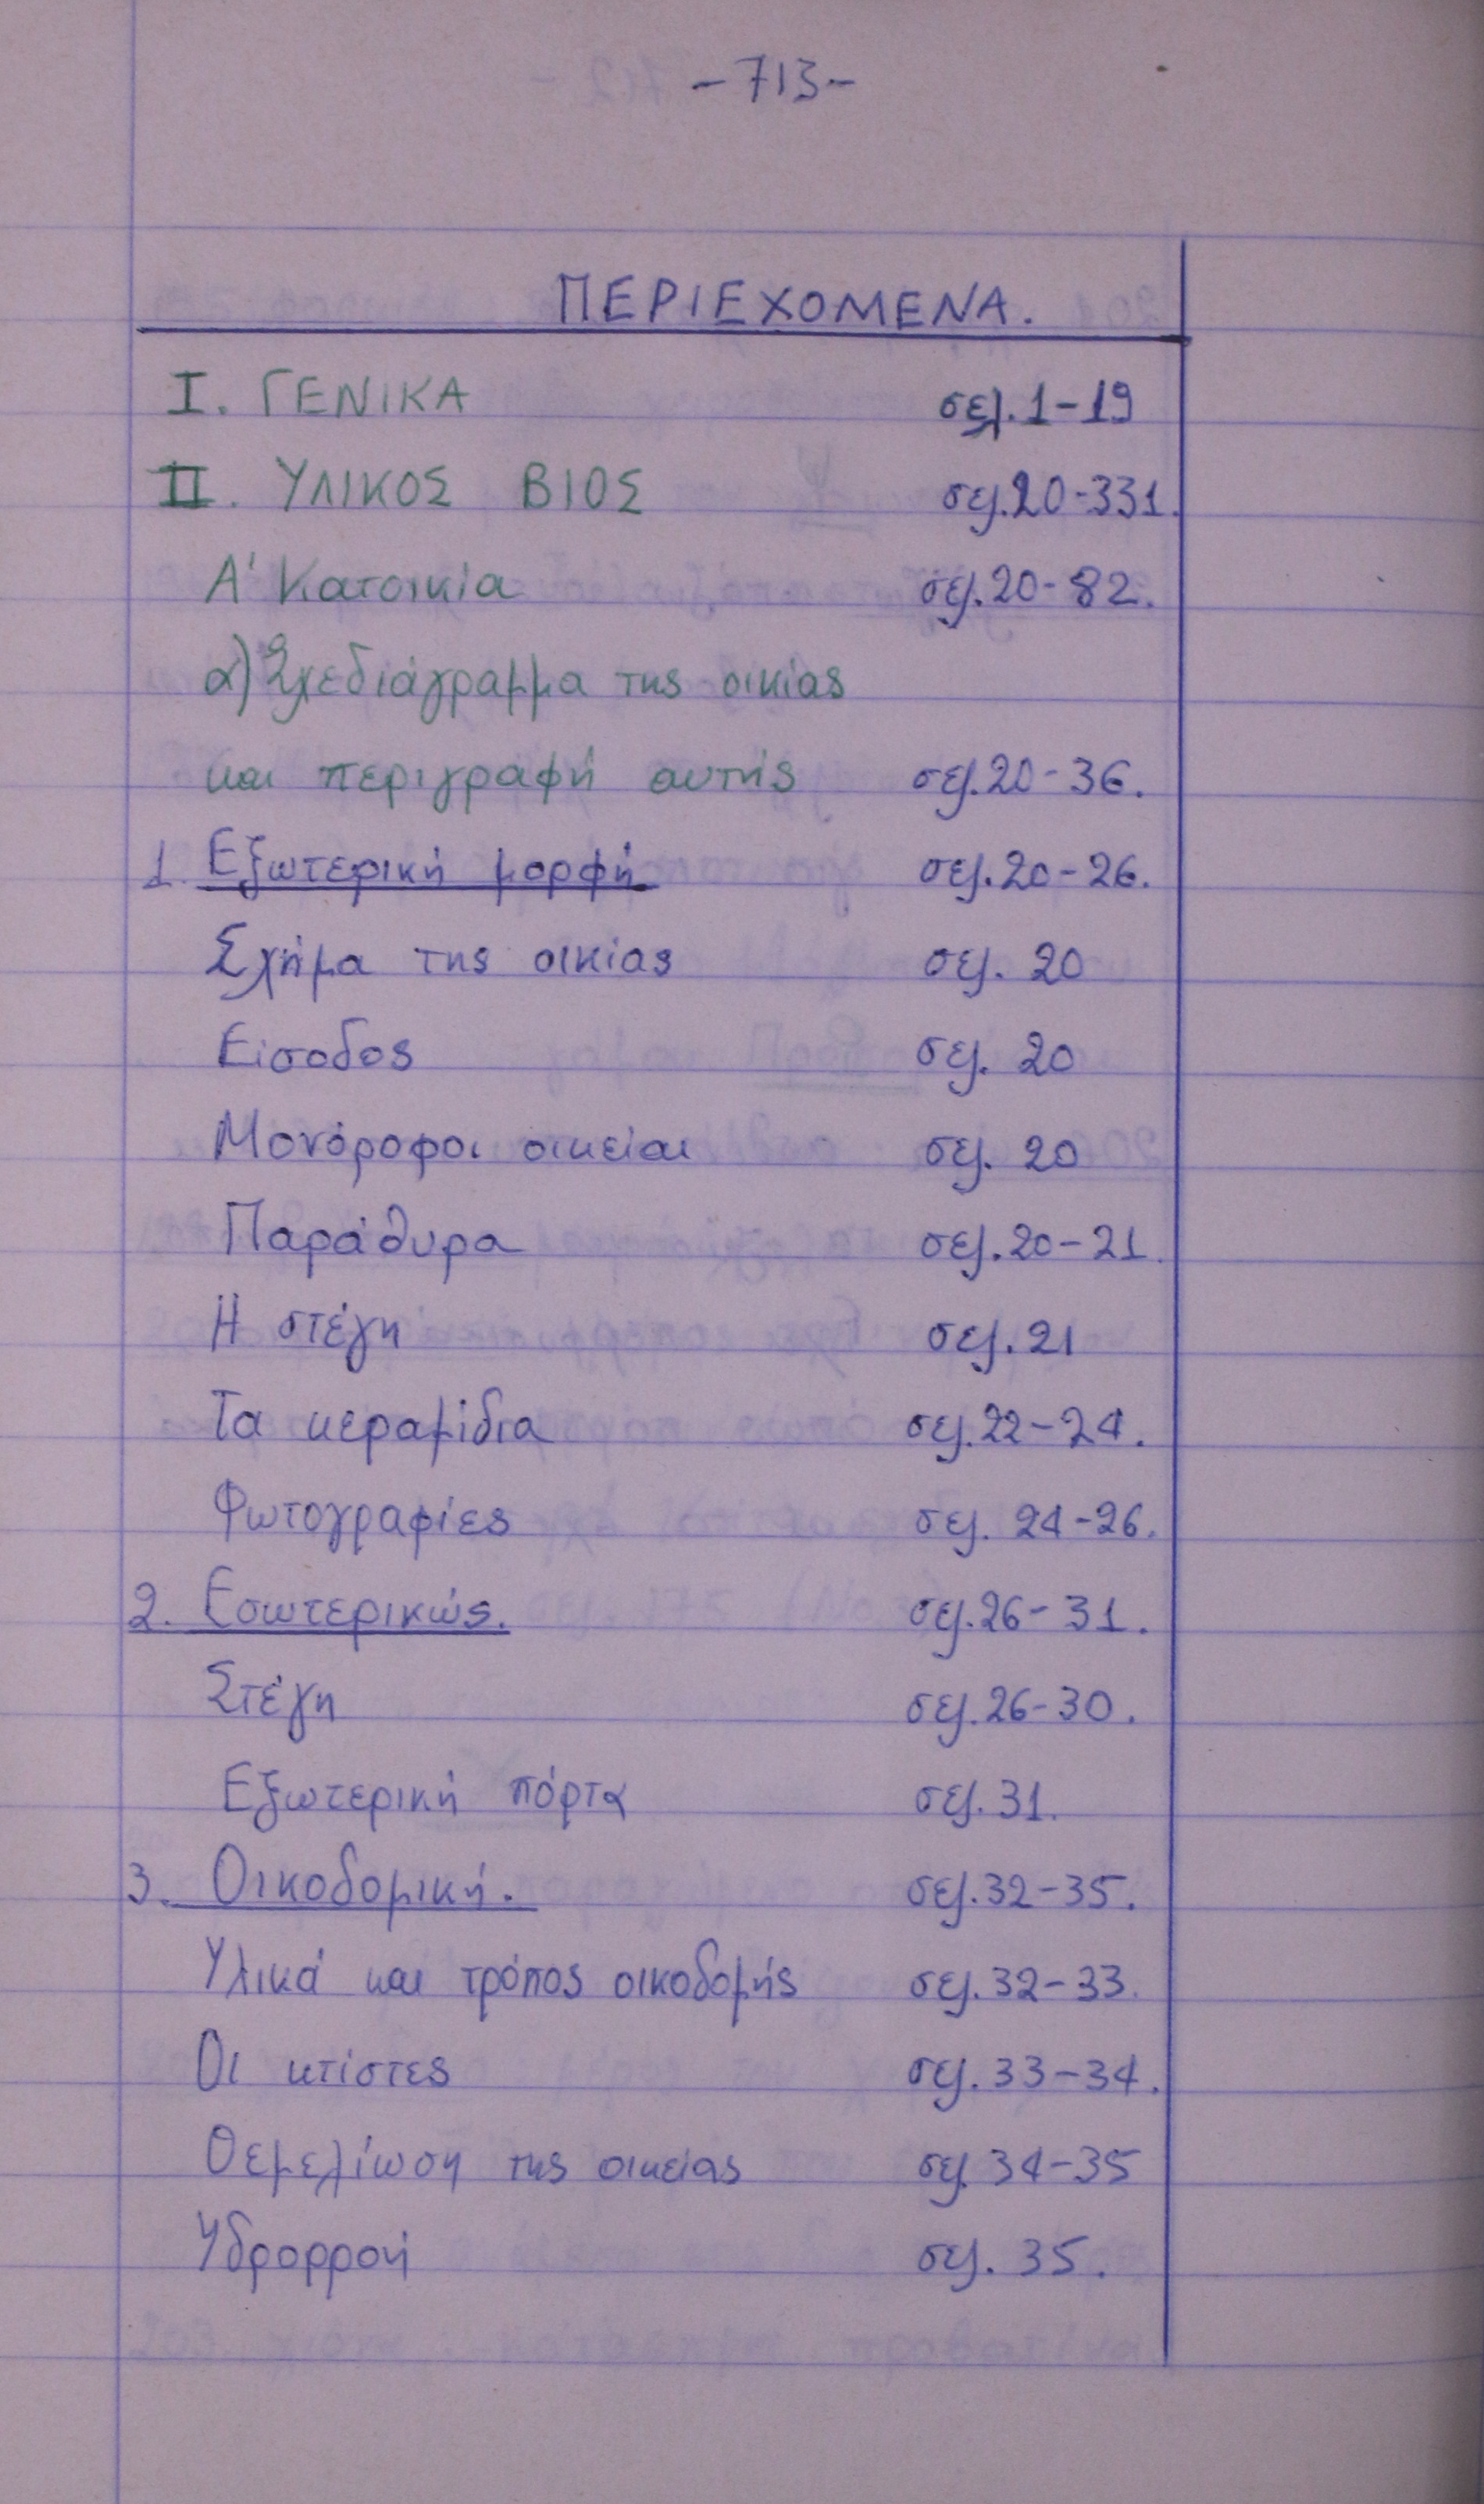 -713-
ΠΕΡΙΕΧΟΜΕΝΑ.
I. ΓΕΝΙΚΑ σελ. 1-19
II. ΥΛΙΚΟΣ ΒΙΟΣ σελ. 20-331.
Α' Κατοικία σελ. 20-82.
α) Σχεδιάγραμμα της οικίας
και περιγραφή αυτής σελ. 20-36.
1. Εξωτερική μορφή σελ. 20-26.
Σχήμα της οικίας σελ. 20
Είσοδος σελ. 20
Μονόροφοι οικείαι σελ. 20
Παράθυρα σελ. 20-21
Η στέγη σελ. 21
Τα κεραμίδια σελ. 22-24.
Φωτογραφίες σελ. 24-26.
2. Εσωτερικώς. σελ. 26-31.
Στέγη σελ. 26-30.
Εξωτερική πόρτα σελ. 31.
3. Οικοδομική. σελ. 32-35.
Υλικά και τρόπος οικοδομής σελ. 32-33.
Οι κτίστες σελ. 33-34.
Θεμελίωση της οικείας σελ. 34-35
Υδρορροή σελ. 35.